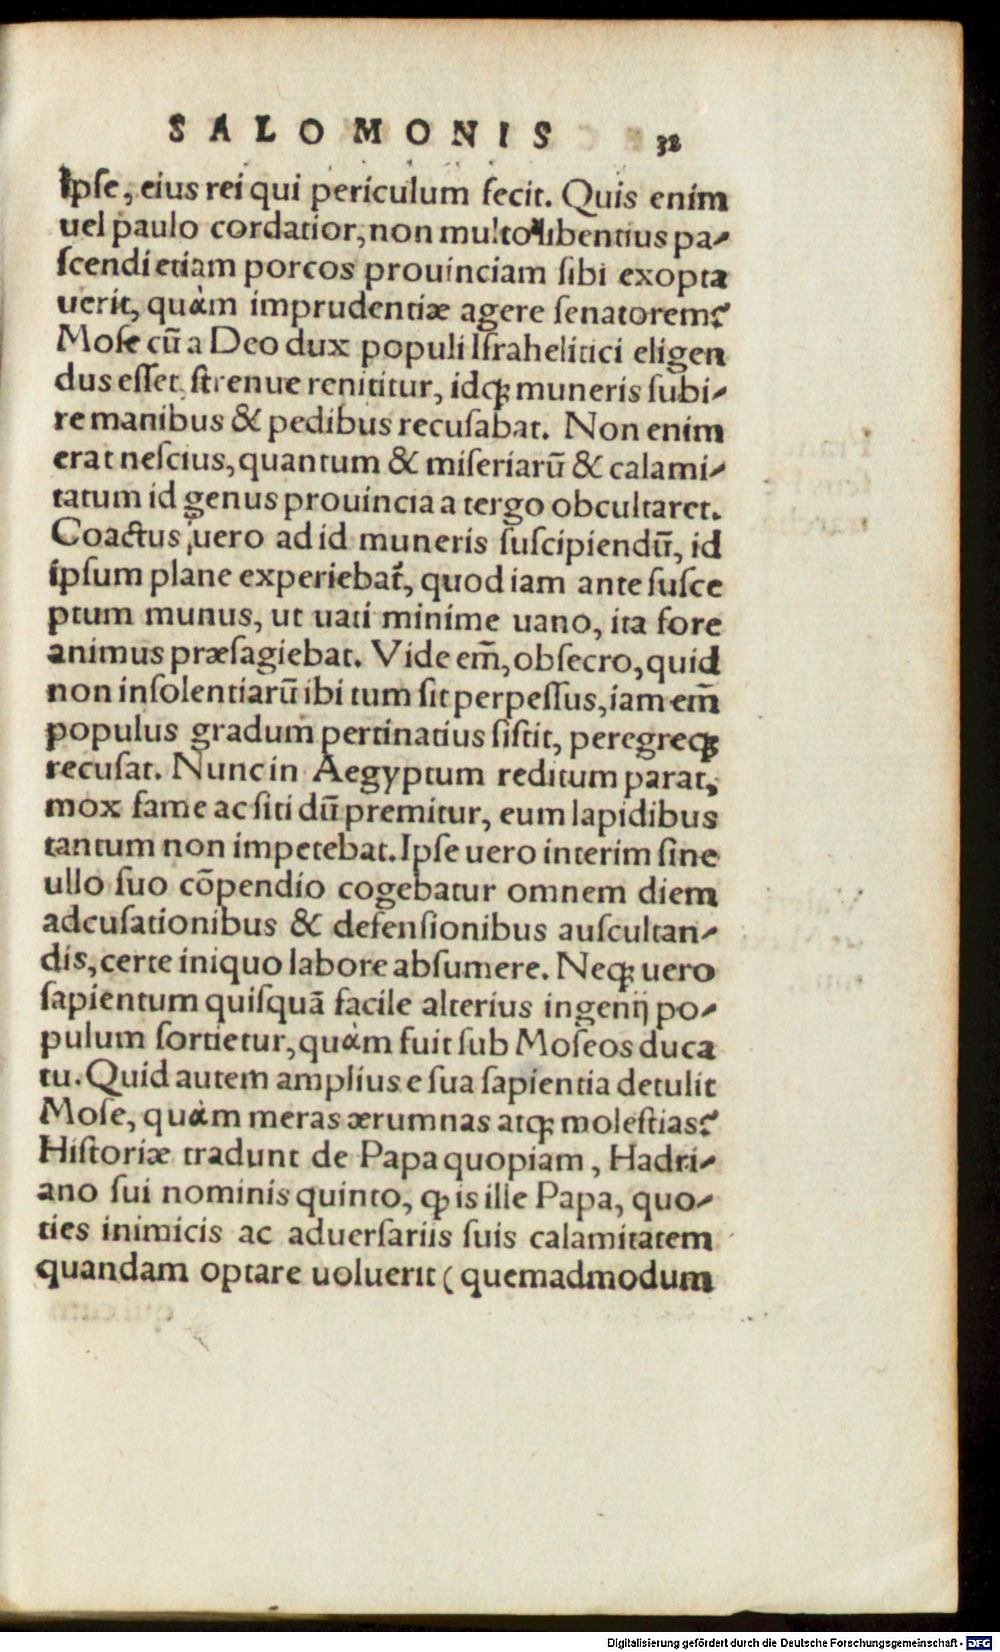 SALOMONIS 32
Ipſe, eius rei qui periculum fecit. Quis enim
uel paulo cordatior, non multo libentius pa-
ſcendi etiam porcos prouinciam ſibi exopta
uerit, quàm imprudentiæ agere ſenatorem?
Moſe cū a Deo dux populi Iſrahelitici eligen
dus eſſet, ſtrenue renititur, idqꝫ muneris ſubi-
re manibus & pedibus recuſabat. Non enim
erat neſcius, quantum & miſeriarū & calami-
tatum id genus prouincia a tergo obcultaret.
Coactus uero ad id muneris ſuſcipiendū, id
ipſum plane experiebat᷑, quod iam ante ſuſce
ptum munus, ut uati minime uano, ita fore
animus præſagiebat. Vide em̄, obſecro, quid
non inſolentiarū ibi tum ſit perpeſſus, iam em̄
populus gradum pertinatius ſiſtit, peregreqꝫ
recuſat. Nunc in Aegyptum reditum parat,
mox fame ac ſiti dū premitur, eum lapidibus
tantum non impetebat. Ipſe uero interim ſine
ullo ſuo cōpendio cogebatur omnem diem
adcuſationibus & defenſionibus auſcultan-
dis, certe iniquo labore abſumere. Neqꝫ uero
ſapientum quiſquā facile alterius ingenij po-
pulum ſortietur, quàm fuit ſub Moſeos duca
tu. Quid autem amplius e ſua ſapientia detulit
Moſe, quàm meras ærumnas atqꝫ moleſtias?
Hiſtoriæ tradunt de Papa quopiam, Hadri-
ano ſui nominis quinto, ꝙ is ille Papa, quo-
ties inimicis ac aduerſariis ſuis calamitatem
quandam optare uoluerit (quemadmodum
Digitalisierung gefördert durch die Deutsche Forschungsgemeinschaft - DFG